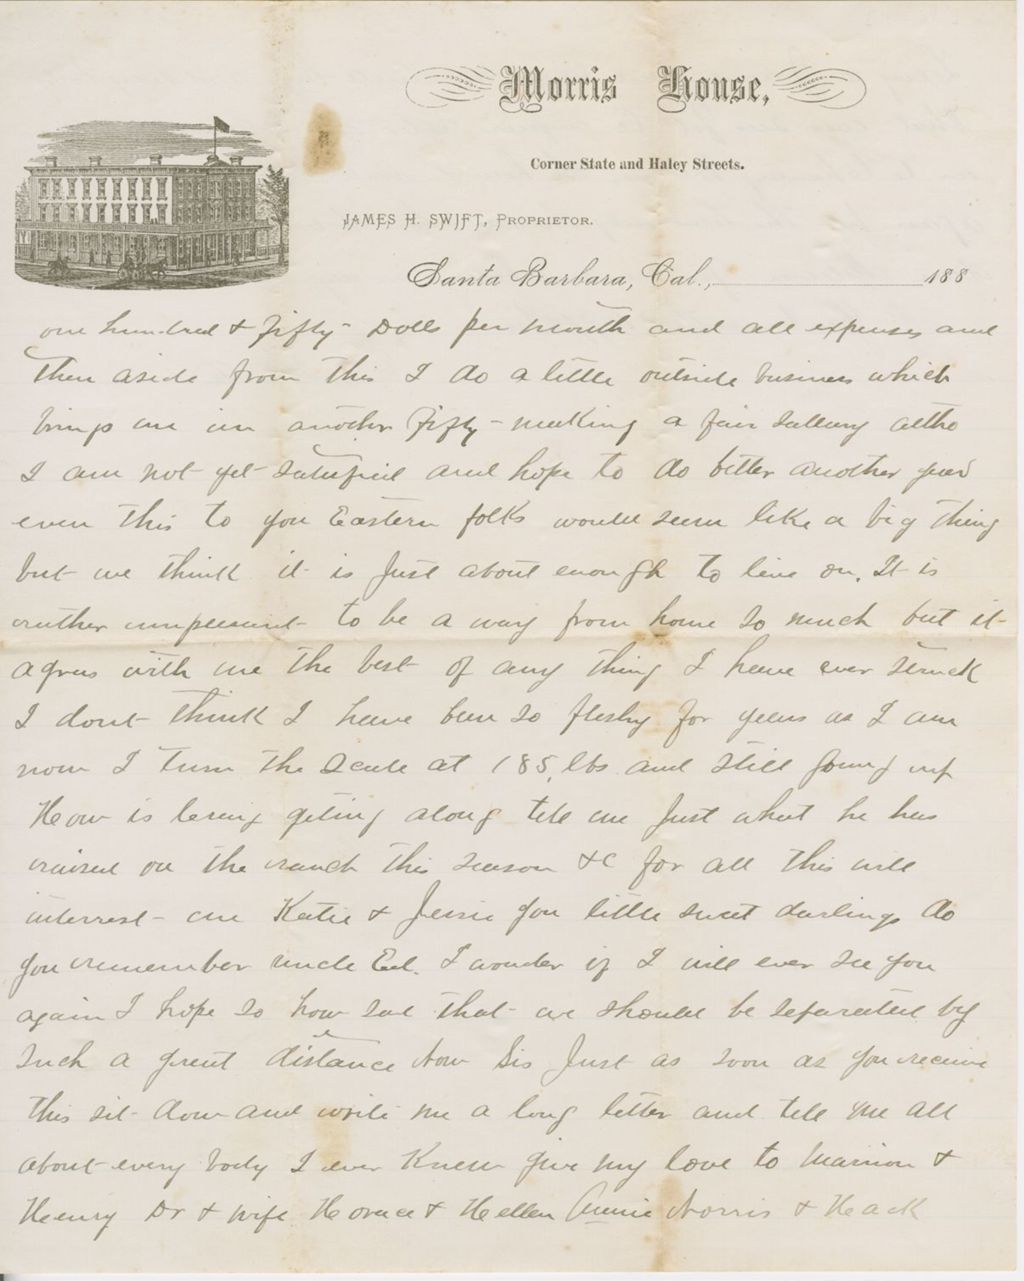 Morris House,
Corner State and Haley Streets.
JAMES H. SWIFT, PROPRIETOR.
Santa Barbara, Cal., 188
one hundred & fifty - Dolls per month and all expenses and
then aside from this I do a little outside business which
brings me in another fifty - making a fair sallary altho
I am not yet satisfied and hope to do better another year
even this to you Eastern folks would seem like a big thing
but we think it is just about enough to live on. It is
to be a way from home so much but it
agrees with me the best of any thing I have ever struck
I dont think I have been so fleshy for years as I am
now I turn the Scale at 185, lbs and still going up
How is geting along tell me just what he has
raised on the ranch this season &c for all this will
interest me Katie & Jessie you little sweet darlings do
you remember uncle Ed. I wonder if I will ever see you
again I hope so how sad that we should be separated by
such a great distance Now Sis Just as soon as you receive
this sit down and write me a long letter and tell me all
about every body I ever Knew give my love to Marion &
Henry Dr & wife Horace & Hellen Annie Norris & Heack